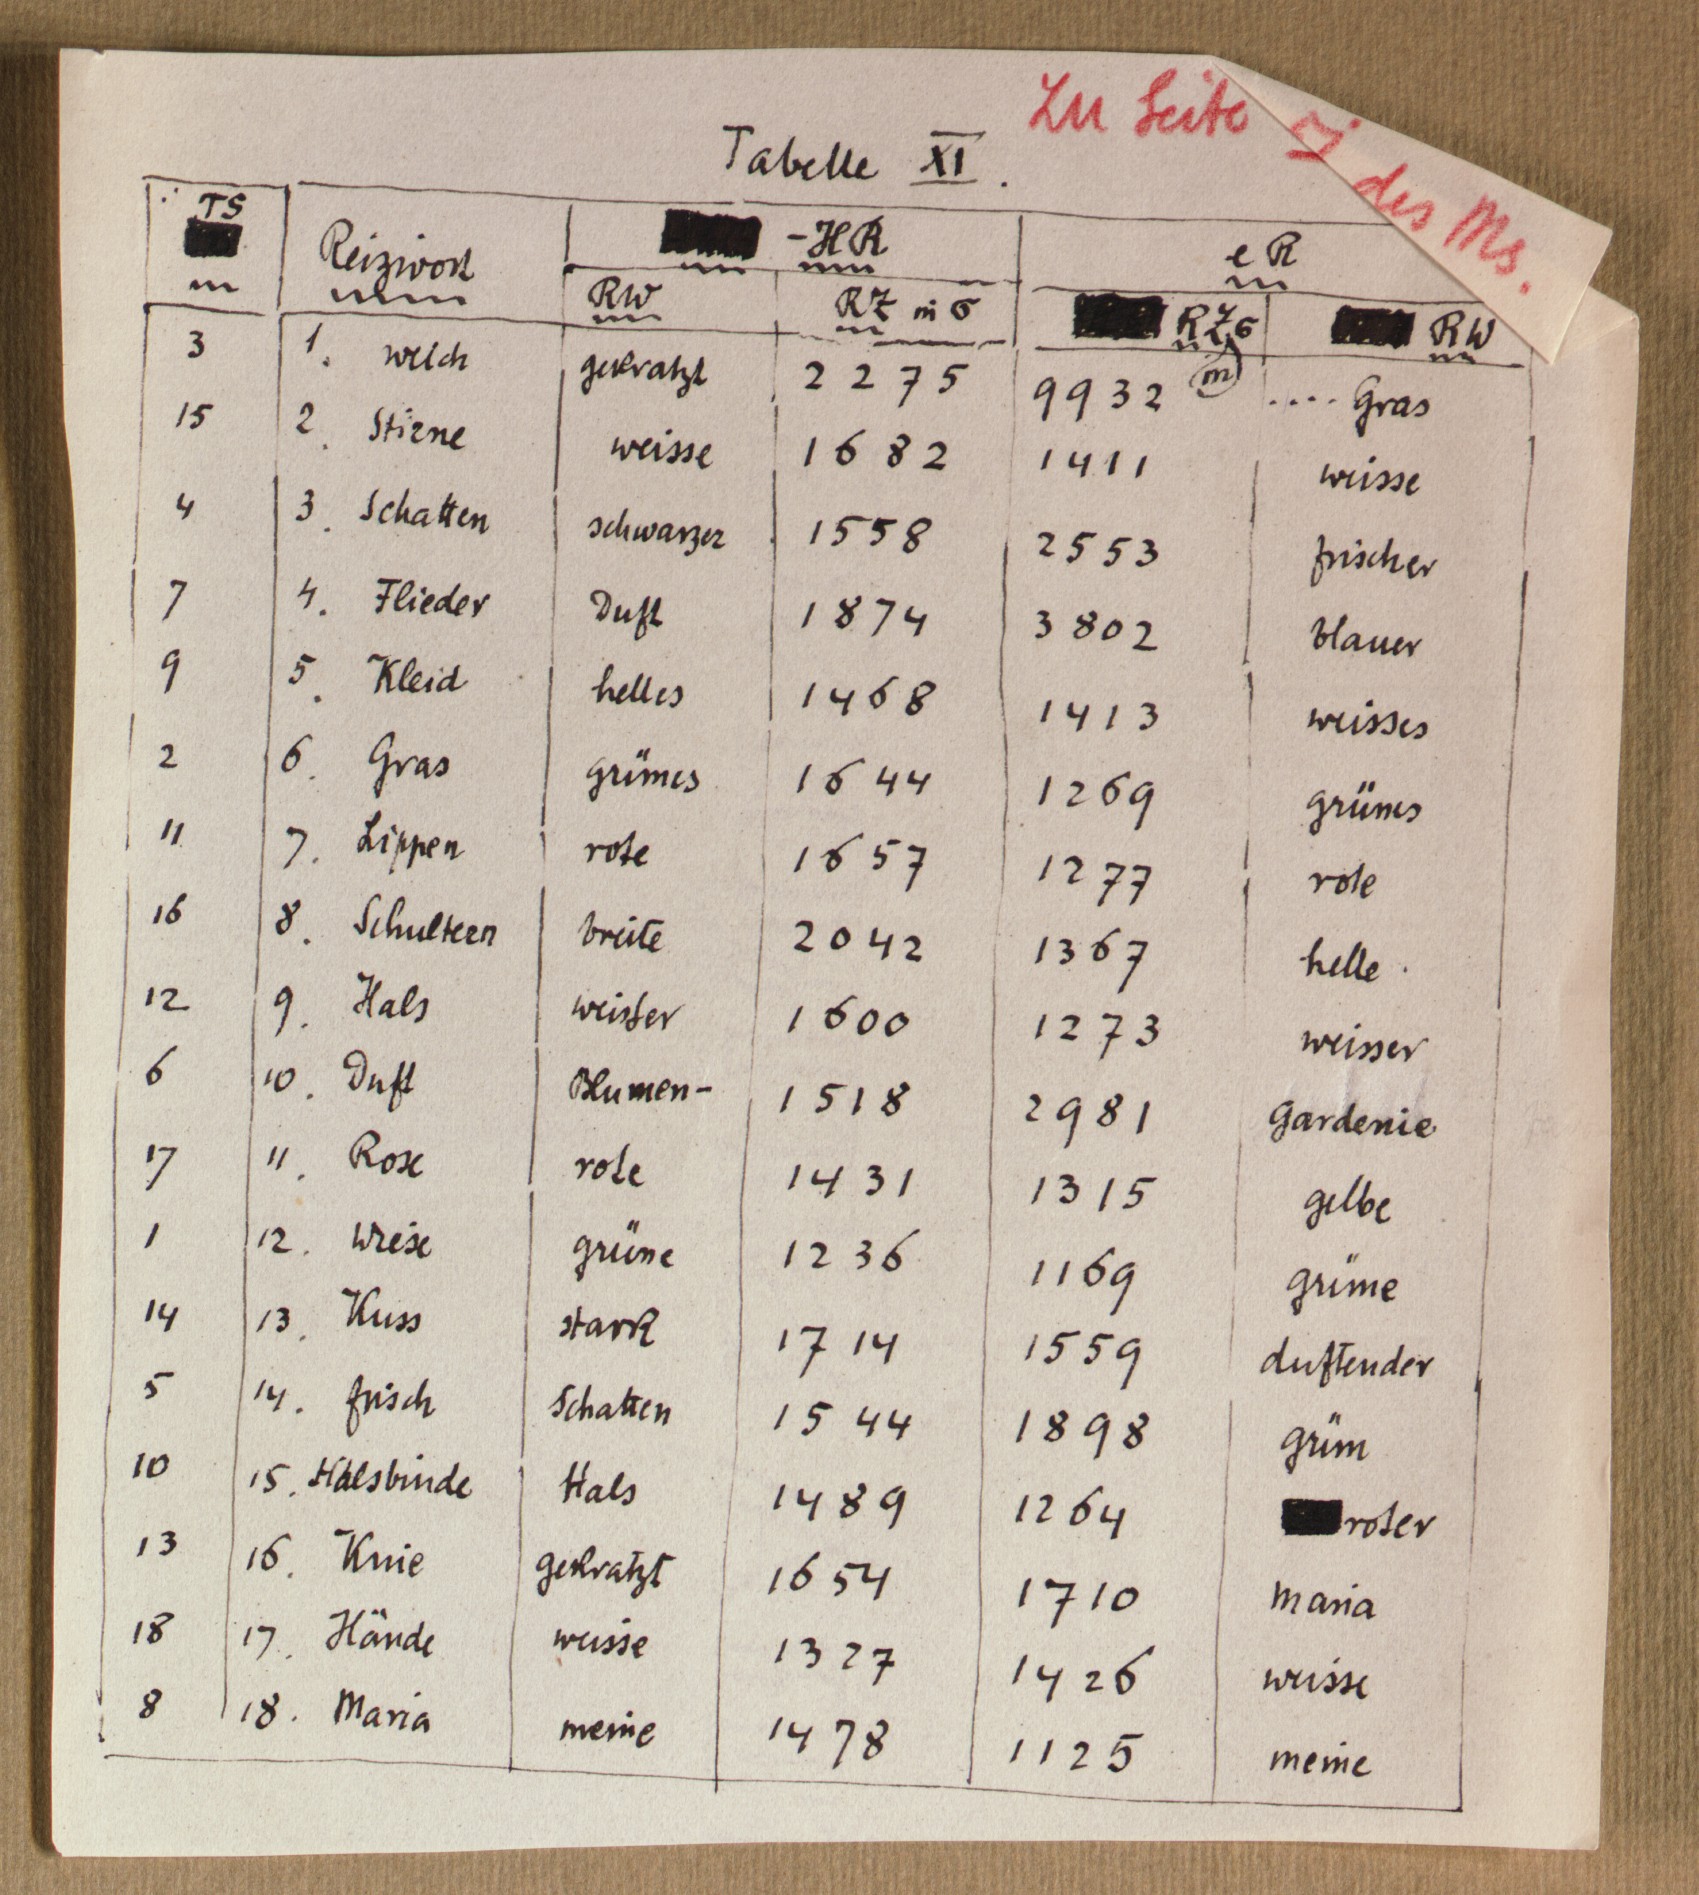 Zu Seite
des Ms.
Tabelle XI.
TS Reizwort -HR eR
RW RZ in σ RZσ RW
(in)
3 1. weich gekratzt 2275 9932 .... Gras
15 2. Stirne weisse 1682 1411 weisse
4 3. Schatten schwarzer 1558 2553 frischer
7 4. Flieder Duft 1874 3802 blauer
9 5. Kleid helles 1468 1413 weisses
2 6. Gras grünes 1644 1269 grünes
11 7. Lippen rote 1657 1277 rote
16 8. Schultern breite 2042 1367 helle
12 9. Hals weisser 1600 1273 weisser
6 10. Duft Blumen- 1518 2981 Gardenie
17 11. Rose rote 1431 1315 gelbe
1 12. Wiese grüne 1236 1169 grüne
14 13. Kuss stark 1714 1559 duftender
5 14. frisch Schatten 1544 1898 grün
10 15. Halsbinde Hals 1489 1264 roter
13 16. Knie gekratzt 1654 1710 Maria
18 17. Hände weisse 1327 1426 weisse
8 18. Maria meine 1478 1125 meine